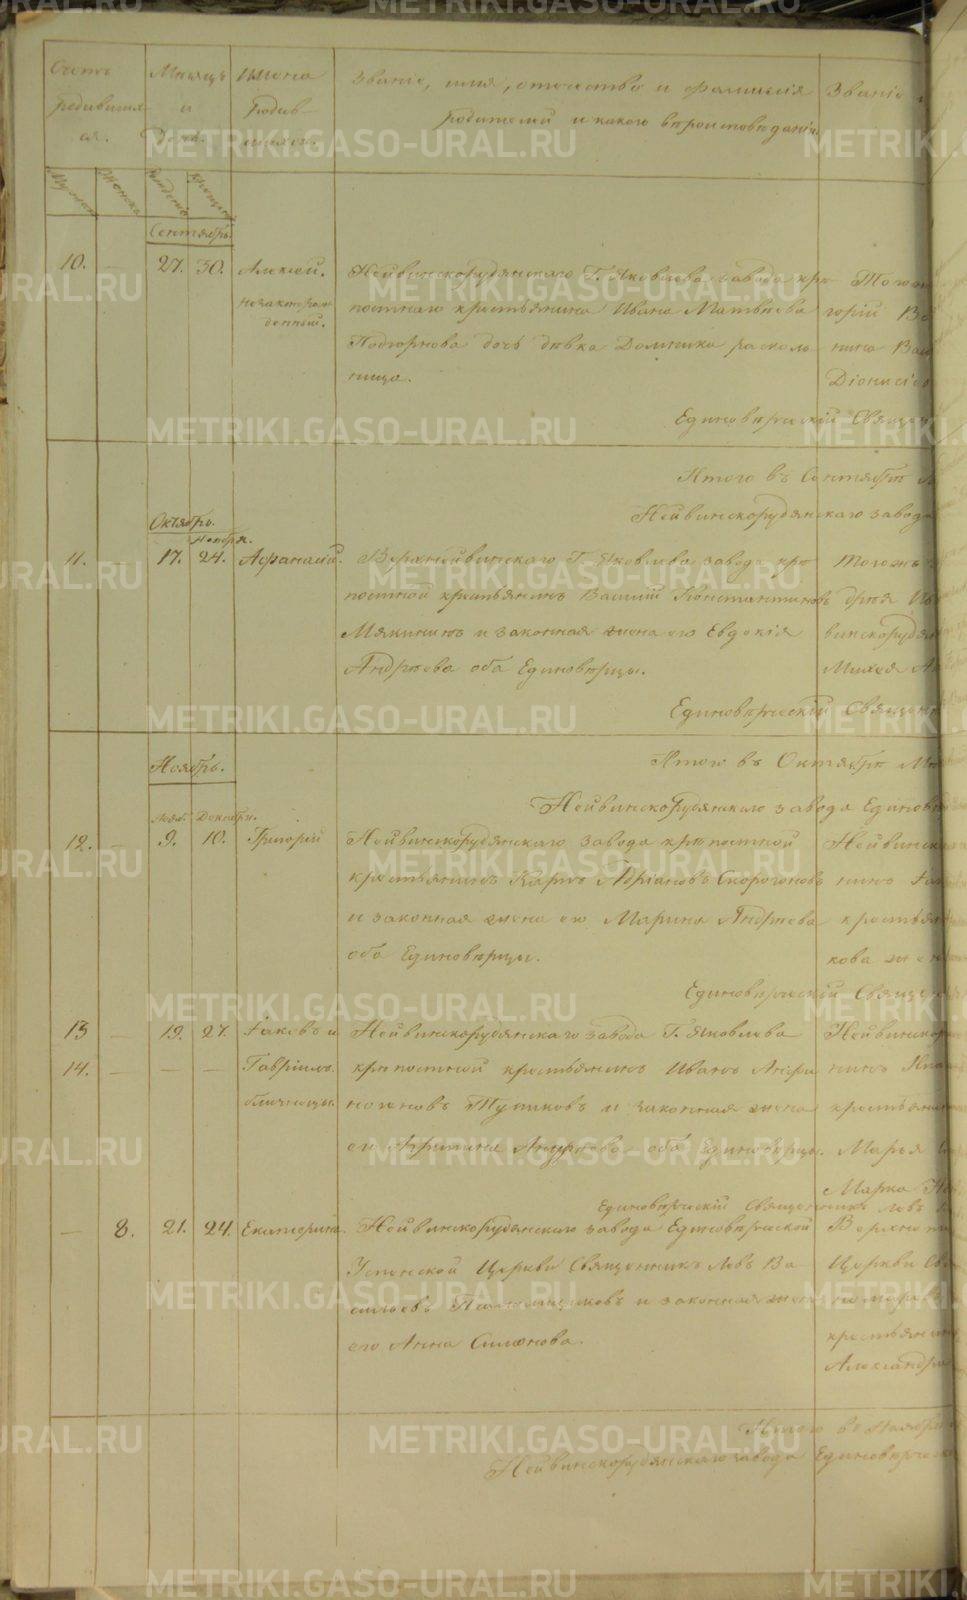 METRIKI.GASO-URAL.RU
Счетъ
родившихся.
Мѣсяцъ
и
День.
Имена
родив-
шихся.
Званіе, имя, отчество и фамилія
родителей и какого вѣроисповѣданія.
Званіе
Мужска
Женска
рожденія
крещенія
Сентябрь.
10. — 27. 30. Алексей.
незаконорож-
денный.
Нейвинскорудянскаго Г. Яковлева завода крѣ-
постнаго крестьянина Ивана Матвѣева
Подгорнова дочь дѣвка Домника расколь-
ница.
Того
горій
нина
Діонисі
Единовѣрческій Священ
Итого въ Сентябрѣ
Нейвинскорудянскаго завода
Октябрь.
Ноября.
11. — 17. 24. Афанасій.
Верхнейвинскаго Г. Яковлева завода крѣ-
постной крестьянинъ Василій Константиновъ
Мякининъ и законная жена его Евдокія
Андрѣева оба Единовѣрцы.
Тогожъ
дрѣя
винскорудян
Михея
Единовѣрческій Священн
Итого въ Октябрѣ
Нейвинскорудянскаго завода Единов
Ноябрь.
Нояб. Декабря.
12. — 9. 10. Григорій
Нейвинскорудянскаго завода крѣпостной
крестьянинъ Карпъ Адріановъ Скорогоновъ
и законная жена его Марина Андрѣева
оба Единовѣрцы.
Нейвинск
нинъ
крестьян
кова жен
Единовѣрческій Священ
13 — 19. 27. Іаковъ и
14. — — — Гавріилъ.
близнецы.
Нейвинскорудянскаго завода Г. Яковлева
крѣпостной крестьянинъ Иванъ Андри
ноговъ Тупиковъ и законная жена
его Агрипина Андрѣева оба Единовѣрцы.
Нейвинскор
нинъ
крестьян
Марья
Марка
Единовѣрческій Священникъ Левъ
— 8. 21. 24. Екатерина.
Нейвинскорудянскаго завода Единовѣрческой
Успенской Церкви Священникъ Левъ Ва-
сильевъ и законная жена
его Анна Симонова.
Верхне
Церкви Св
крестьянин
Александра
Итого въ Ноябрѣ
Нейвинскорудянскаго завода Единовѣрческ